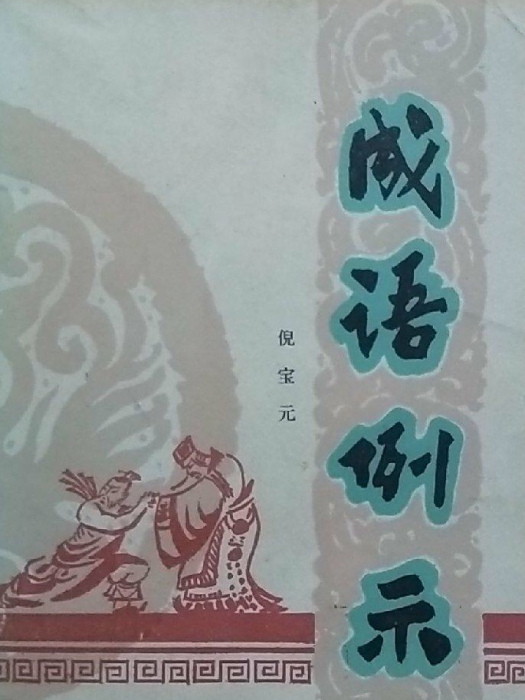 成语例示
倪宝元